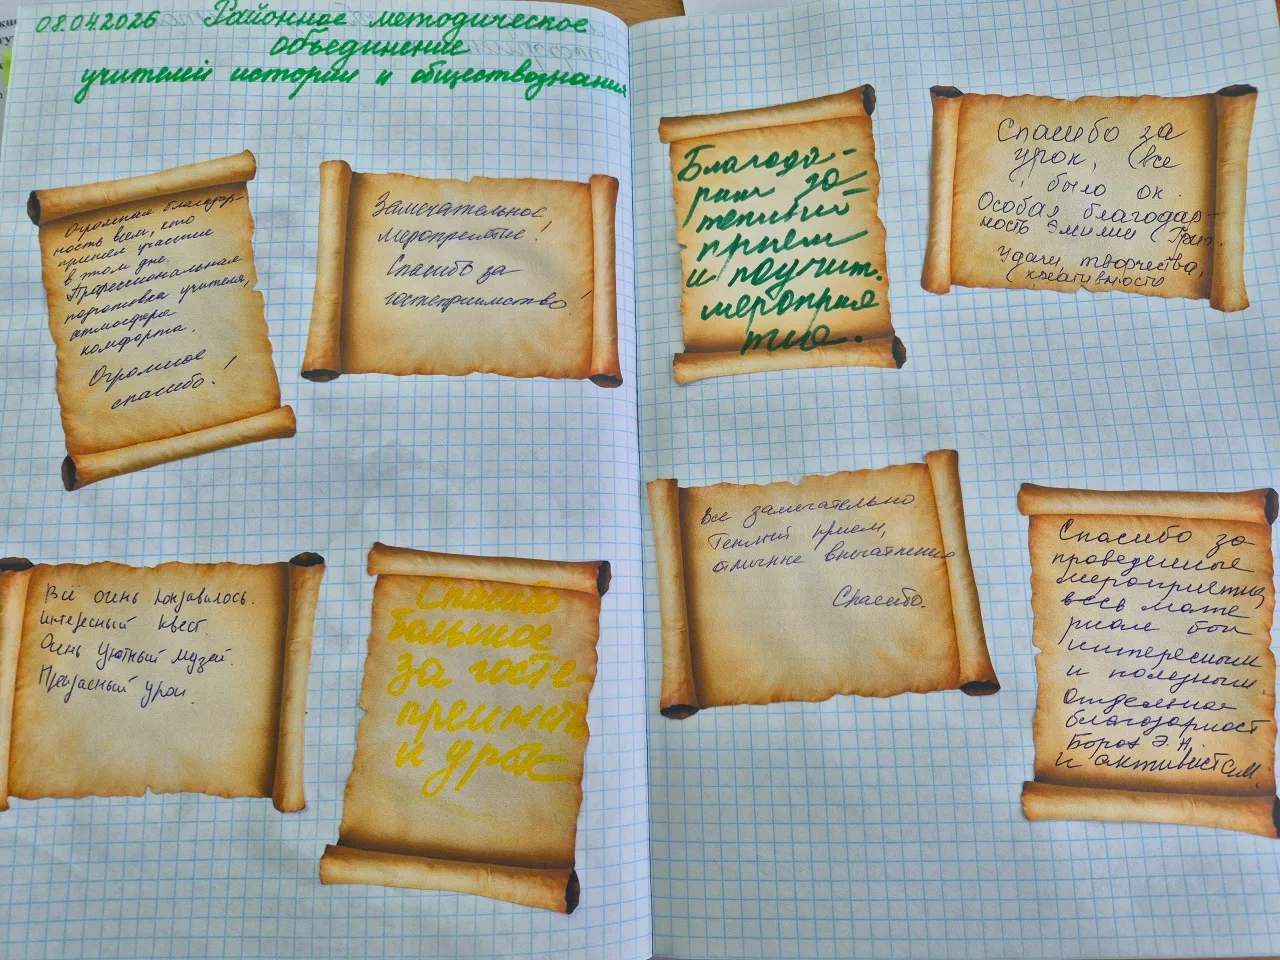 08.04.2026 Районное методическое
объединение
учителей истории и обществознания
Огромная благодар-
ность всем, кто
принял участие
в этом дне.
Профессиональная
подготовка учителя,
атмосфера
комфорта.
Огромное
спасибо!
Замечательное
мероприятие!
Спасибо за
гостеприимство!
Всё очень понравилось.
Интересный квест.
Очень уютный музей.
Прекрасный урок.
Спасибо
большое
за госте-
преимст
и урок
Благода-
рим за
теплый
прием
и поучит.
мероприя
тие.
Спасибо за
урок, (все
было ок.
Особая благодар-
ность Эмилии
Удачи, творчества,
креативность
Все замечательно
Теплый прием,
отличные впечатления
Спасибо.
Спасибо за
проведенные
мероприятия,
весь мате
риал был
интересным
и полезным.
Отдельная
благодарност
Э. Н.
и активистам.